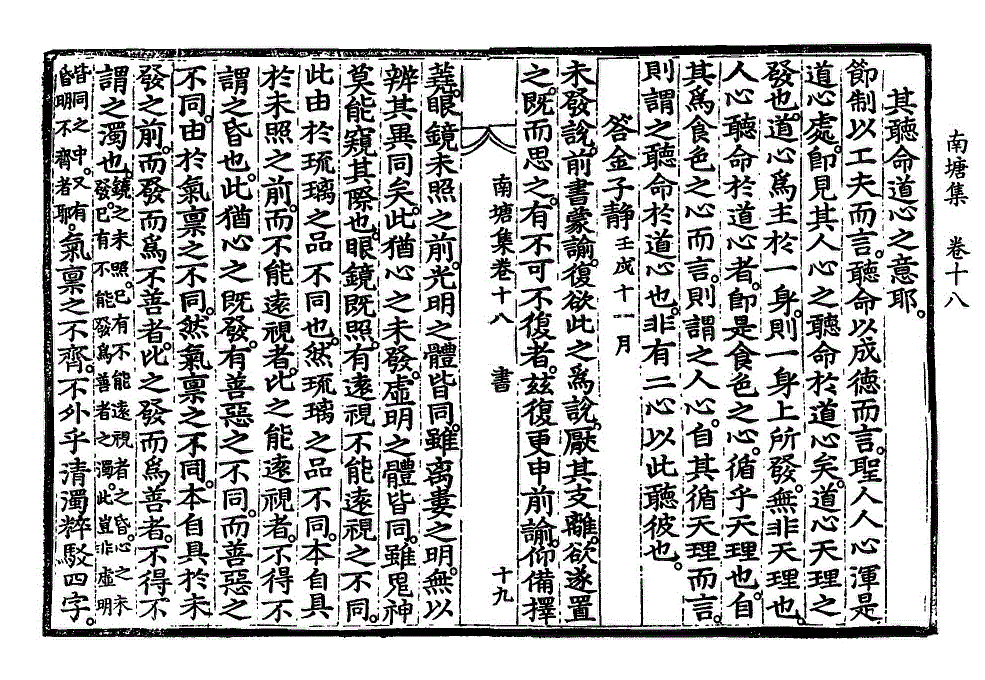 南塘集　卷十八
其聽命道心之意耶。
節制以工夫而言。聽命以成德而言。聖人人心渾是
道心處。卽見其人心之聽命於道心矣。道心天理之
發也。道心爲主於一身。則一身上所發。無非天理也。
人心聽命於道心者。卽是食色之心。循乎天理也。自
其爲食色之心而言。則謂之人心。自其循天理而言。
則謂之聽命於道心也。非有二心以此聽彼也。
答金子靜 壬戌十一月
未發說。前書蒙諭。復欲此之爲說。厭其支離。欲遂置
之。旣而思之。有不可不復者。玆復更申前諭。仰備擇
南塘集卷十八　書　十九
蕘。眼鏡未照之前。光明之體皆同。雖离婁之明。無以
辨其異同矣。此猶心之未發。虛明之體皆同。雖鬼神
莫能窺其際也。眼鏡旣照。有遠視不能遠視之不同。
此由於琉璃之品不同也。然琉璃之品不同。本自具
於未照之前。而不能遠視者。此之能遠視者。不得不
謂之昏也。此猶心之旣發。有善惡之不同。而善惡之
不同。由於氣禀之不同。然氣禀之不同。本自具於未
發之前。而發而爲不善者。比之發而爲善者。不得不
謂之濁也。鏡之未照。已有不能遠視者之昏。心之未
發。已有不能發爲善者之濁。此豈非虛明
皆同之中。又有
昏明不齊者耶。氣禀之不齊。不外乎淸濁粹駁四字。